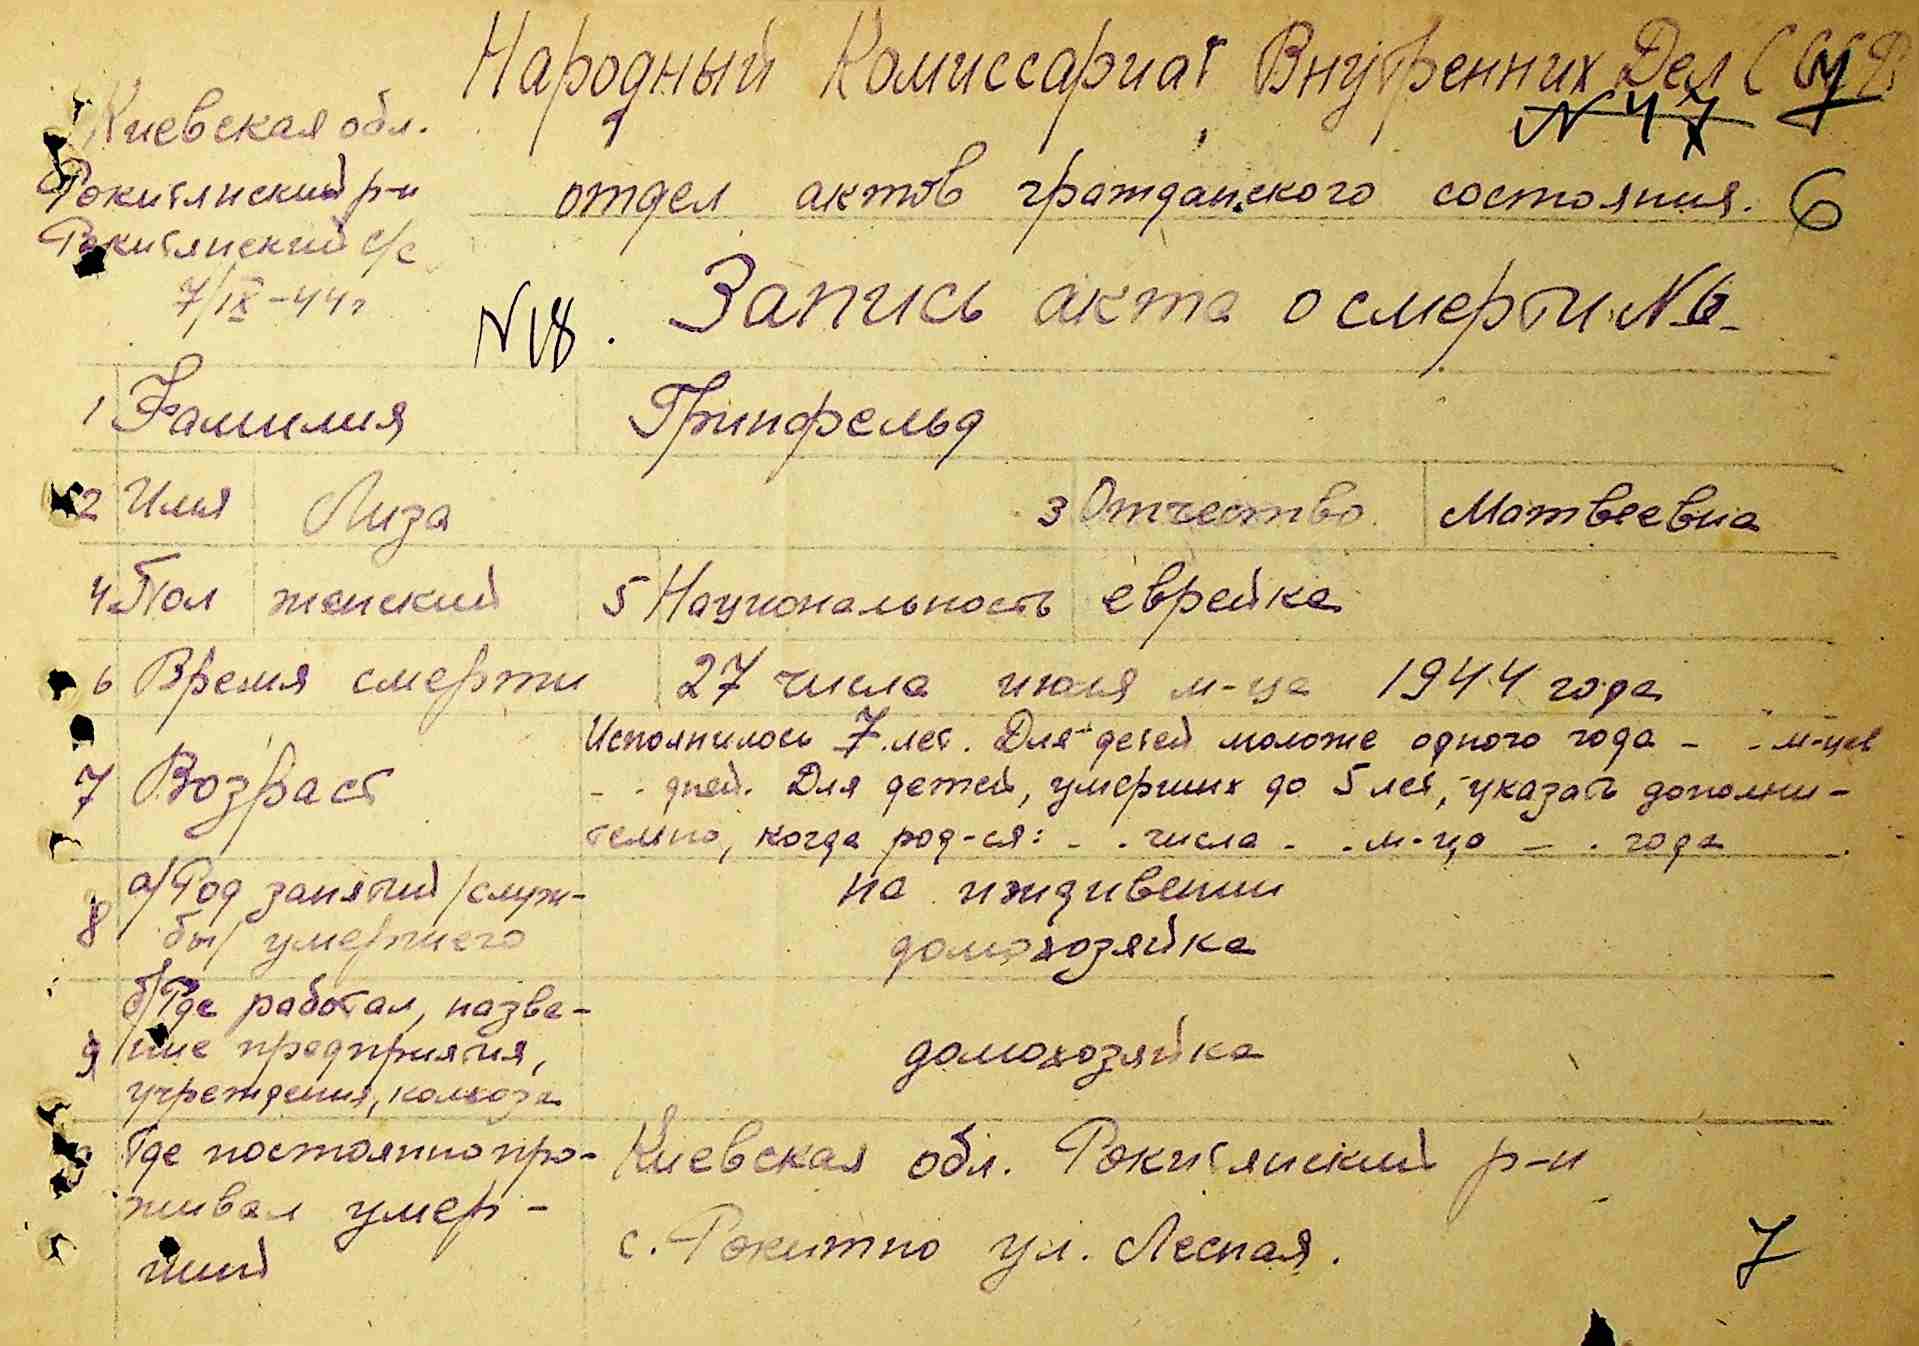 Народный Комиссариат Внутренних Дел СССР
N 47
Киевская обл.
Рокитянский р-н
Рокитянский с/с
7/IX-44г
отдел актов гражданского состояния. 6
N18. Запись акта о смерти N 6
1 Фамилия Гринфельд
2 Имя Лиза 3 Отчество Матвеевна
4 Пол женский 5 Национальность еврейка
6 Время смерти 27 числа июля м-ца 1944 года
7 Возраст
Исполнилось 7 лет. Для детей моложе одного года - - м-цев
- - дней. Для детей, умерших до 5 лет, указать дополни-
тельно, когда род-ся: - . числа - . м-ца - . года
8 а/ Род занятий /служ-
бы/ умершего
на иждивении
домохозяйка
9 б/ Где работал, назва-
ние предприятия,
учреждения, колхоза
домохозяйка
Где постоянно про-
живал умер-
ший
Киевская обл. Рокитянский р-н
с. Рокитно ул. Лесная.
7